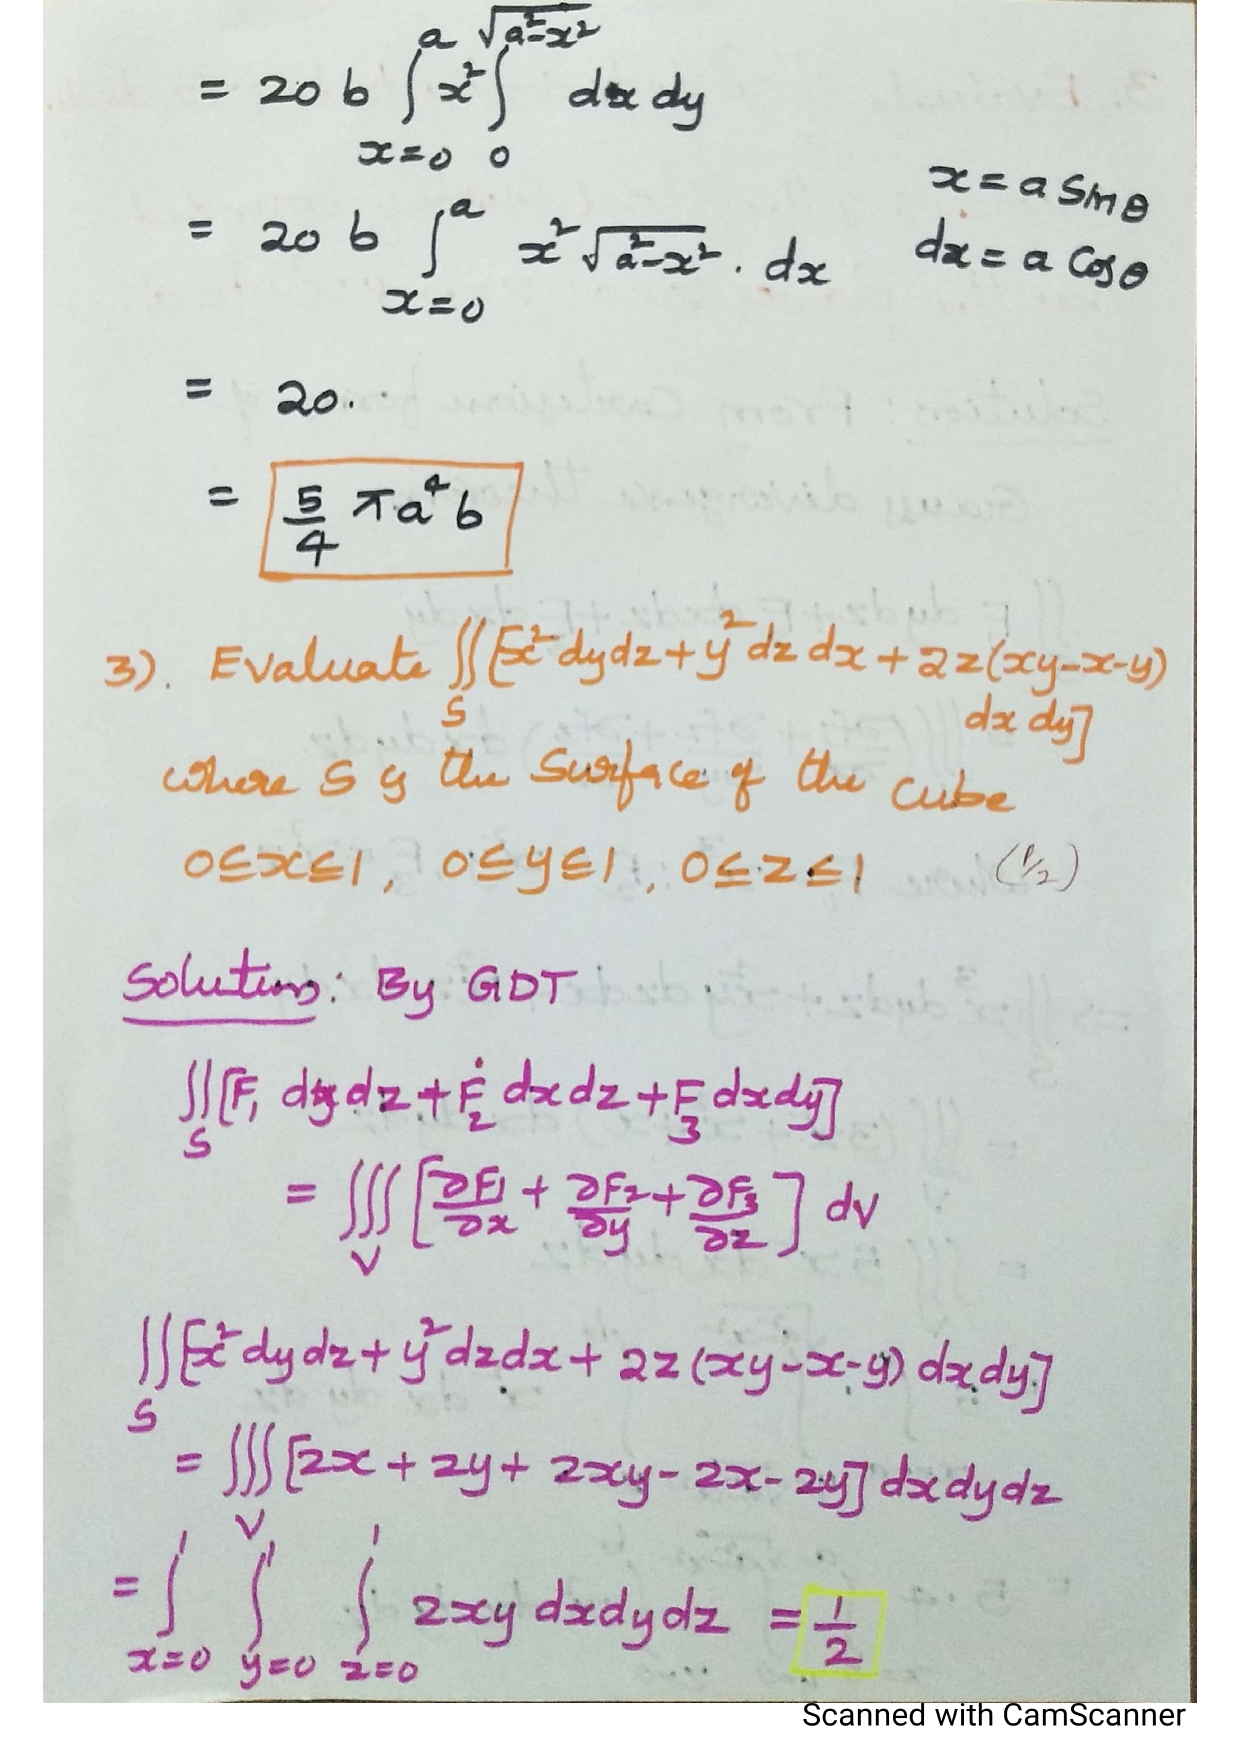 = 20 b ∫_{x=0}^{a} x² ∫_{0}^{√(a²-x²)} dx dy
= 20 b ∫_{x=0}^{a} x² √(a²-x²) . dx
x = a Sinθ
dx = a Cosθ
= 20.
= 5/4 πa⁴b
3). Evaluate ∬_S [x² dydz + y² dz dx + 2z(xy-x-y)
dx dy]
where S is the Surface of the cube
0≤x≤1, 0≤y≤1, 0≤z≤1 (1/2)
Solution: By GDT
∬_S [F₁ dy dz + F₂ dx dz + F₃ dx dy]
= ∭_V [∂F₁/∂x + ∂F₂/∂y + ∂F₃/∂z] dv
∬_S [x² dy dz + y² dz dx + 2z (xy-x-y) dx dy]
= ∭_V [2x + 2y + 2xy - 2x - 2y] dx dy dz
= ∫_{x=0}^{1} ∫_{y=0}^{1} ∫_{z=0}^{1} 2xy dx dy dz = 1/2
Scanned with CamScanner